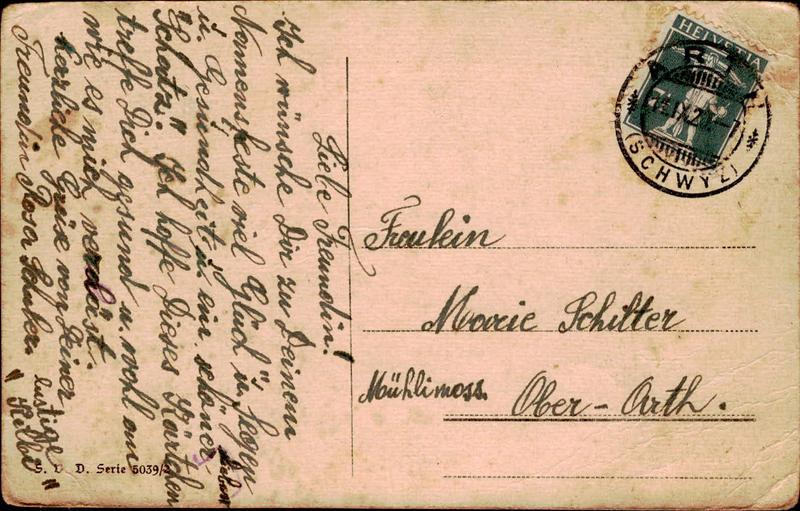 Liebe Freundin!
Ich wünsche Dir zu Deinem
Namensfeste viel Glück u. Segen
u. Gesundheit u. ein schöner
lieber
Schatz". Ich hoffe Dieses Kärtchen
treffe Dich gesund u. wohl an
wie es mich verlässt.
Herzliche Grüse von Deiner
Freundin Rosa
lustige
"Kilbi"
HELVETIA
(SCHWYZ)
Fraulein
Marie Schilter
Mühlimoss.
Ober-Arth.
S. V. D. Serie 5039/2